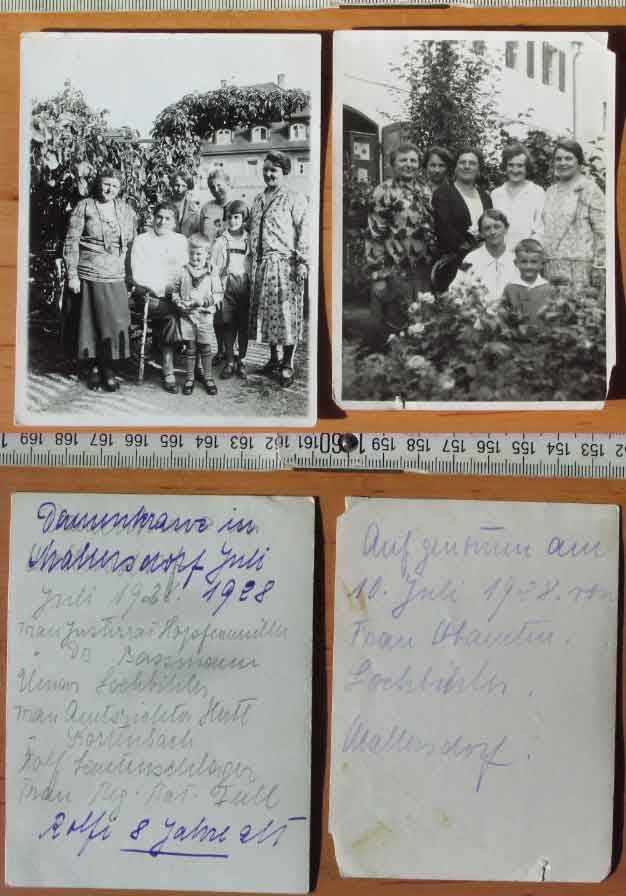 169 168 167 166 165 164 163 162 161 60 159 158 157 156 155 154 153 152
Damenkranz in
Mallersdorf Juli
Juli 1928. 1928
Frau Justizrat Hopfenmüller
" Dr Bassmann
Lochbühler
Frau Amtsrichter Hertl
"
Rolf Lautenschlager
Frau Reg. Rat.
Rolfi 8 Jahre alt
Aufgenommen am
10. Juli 1928. von
Frau
Lochbühler.
Mallersdorf.